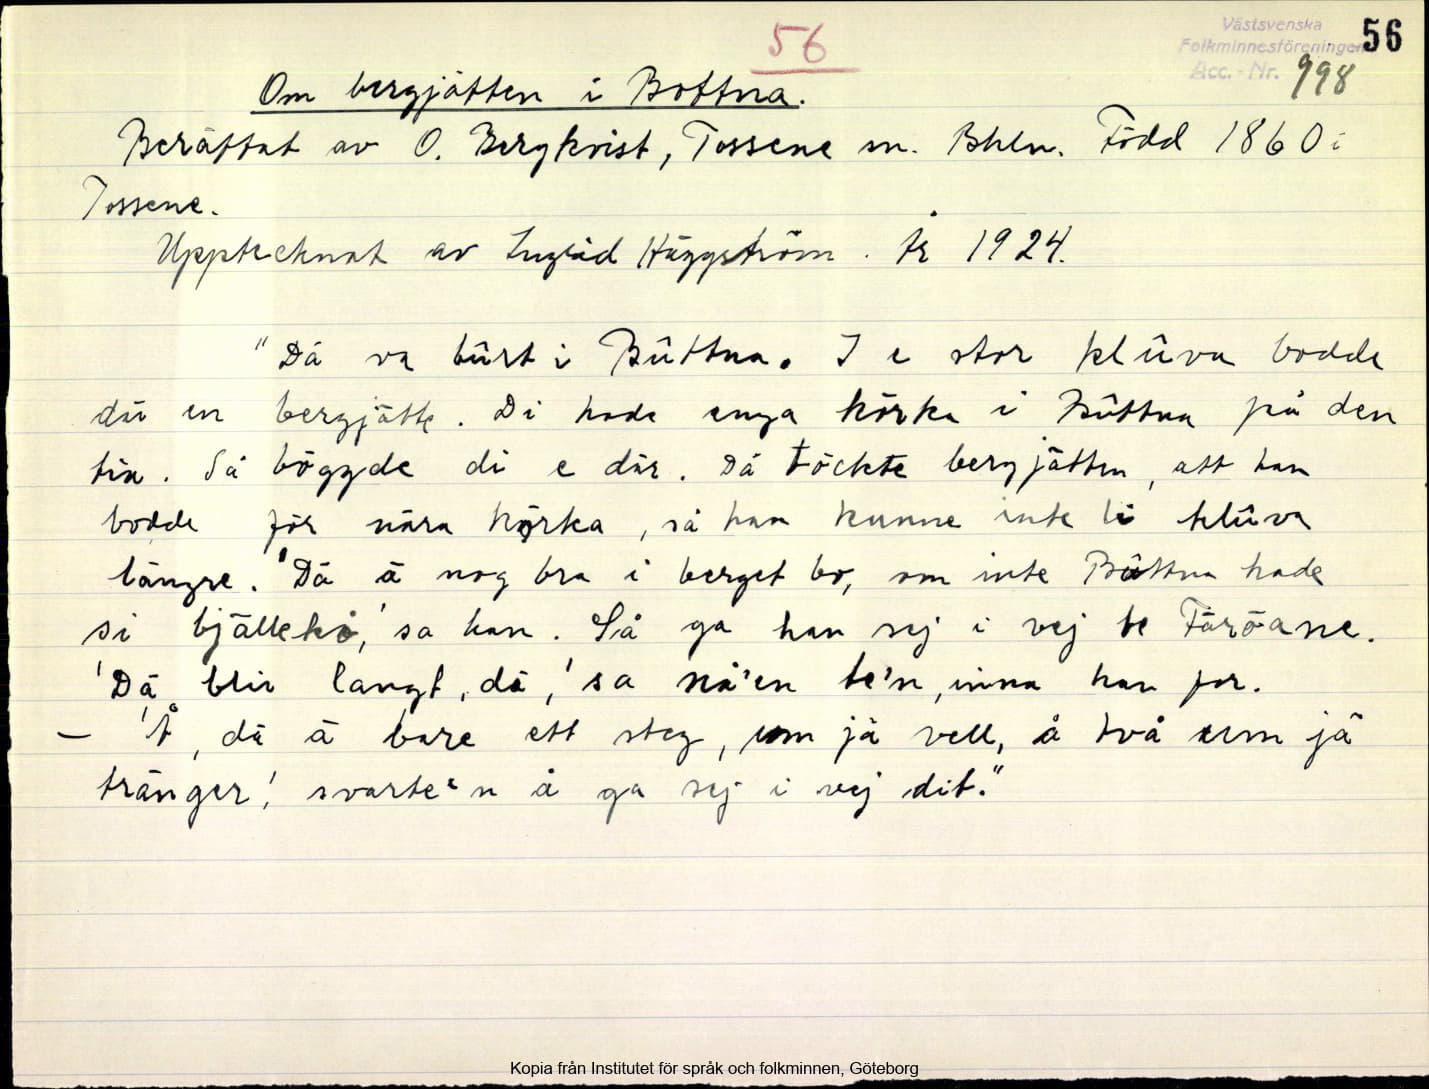 56
Västsvenska
Folkminnesföreningen 56
Acc.-Nr. 998
Om bergjätten i Bottna.
Berättat av O. Bergkvist, Tossene sn. Bhln. Född 1860 i
Tossene.
Upptecknat av Ingrid Häggström. År 1924.
"Dä va bûrt i Bûttna. I e stor klûva bodde
där en bergjätte. Di hade enga körka i Bûttna på den
tia. Så böggde di e där. Dä töckte bergjätten, att han
bodde för nära körka, så han kunne inte li klûva
längre. 'Dä ä nog bra i berget bo, om inte Bûttna hade
si bjälleko,' sa han. Så ga han sej i vej te Färöane.
'Dä blir langt, dä,' sa nå'en te'n, inna han for.
— 'Å, dä ä bare ett steg, um jä vell, å två um jä
tränger', svarte'n å ga sej i vej dit."
Kopia från Institutet för språk och folkminnen, Göteborg